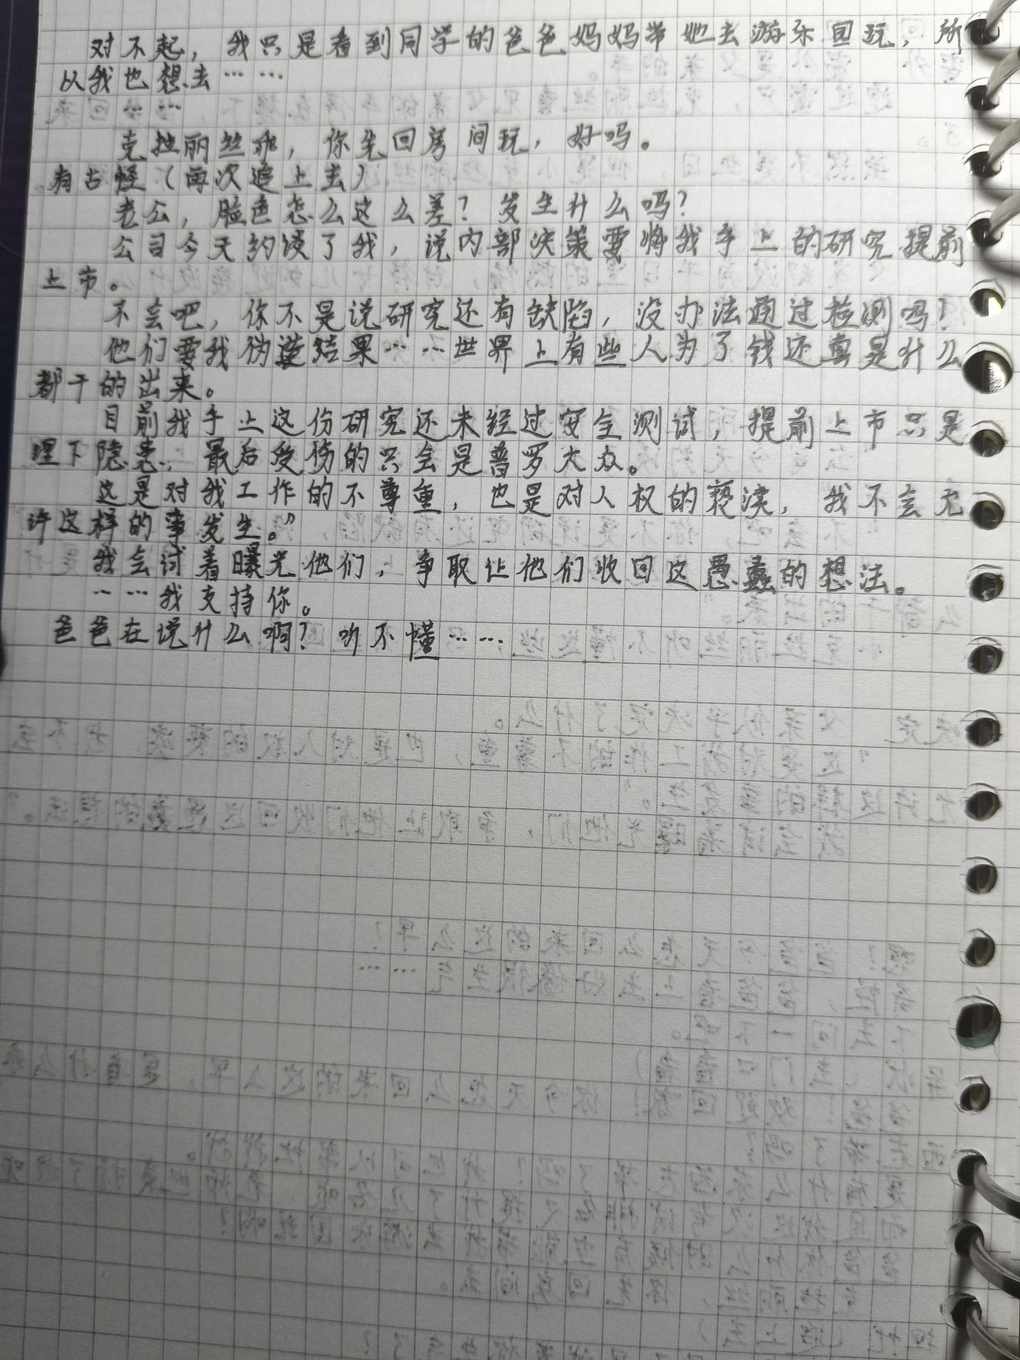 对不起，我只是看到同学的爸爸妈妈带她去游乐园玩，所
以我也想去……
克拉丽丝，你先回房间玩，好吗。
有古怪（再次追上去）
老公，脸色怎么这么差？发生什么吗？
公司今天约谈了我，说内部决策要将我手上的研究提前
上市。
不会吧，你不是说研究还有缺陷，没办法通过检测吗！
他们要我伪造结果……世界上有些人为了钱还真是什么
都干的出来。
目前我手上这份研究还未经过安全测试，提前上市只是
埋下隐患，最后受伤的只会是普罗大众。
这是对我工作的不尊重，也是对人权的亵渎，我不会允
许这样的事发生。”
我会试着曝光他们，争取让他们收回这愚蠢的想法。
……我支持你。
爸爸在说什么啊？听不懂……